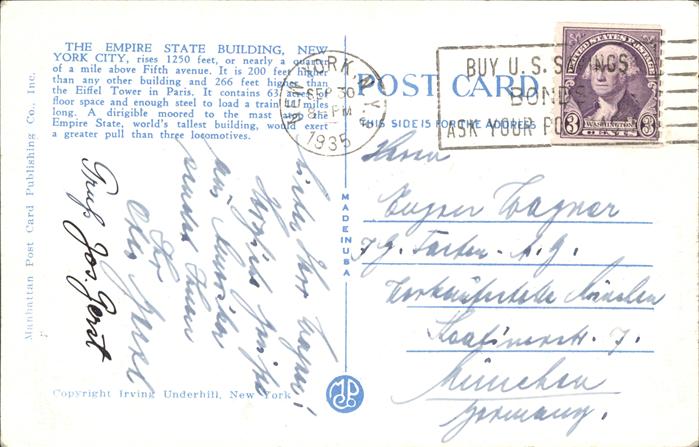 THE EMPIRE STATE BUILDING, NEW
YORK CITY, rises 1250 feet, or nearly a quarter
of a mile above Fifth avenue. It is 200 feet higher
than any other building and 266 feet higher than
the Eiffel Tower in Paris. It contains 63 acres of
floor space and enough steel to load a train miles
long. A dirigible moored to the mast atop the
Empire State, world's tallest building, would exert
a greater pull than three locomotives.
POST CARD
THIS SIDE IS FOR THE ADDRESS
NEW YORK N.Y.
SEP 30
8 PM
1935
BUY U.S. SAVINGS
BONDS
ASK YOUR POSTMASTER
UNITED STATES POSTAGE
WASHINGTON
3 CENTS 3
Manhattan Post Card Publishing Co., Inc.
MADE IN USA
Lieber Herr Wagner!
Herzliche Grüße
aus
sendet Ihnen
Ihr
Otto
Gruß Jos.
Herrn
Eugen Wagner
I.G. Farben-A.G.
Verkaufsstelle München
7.
München
Germany.
Copyright Irving Underhill, New York
MP